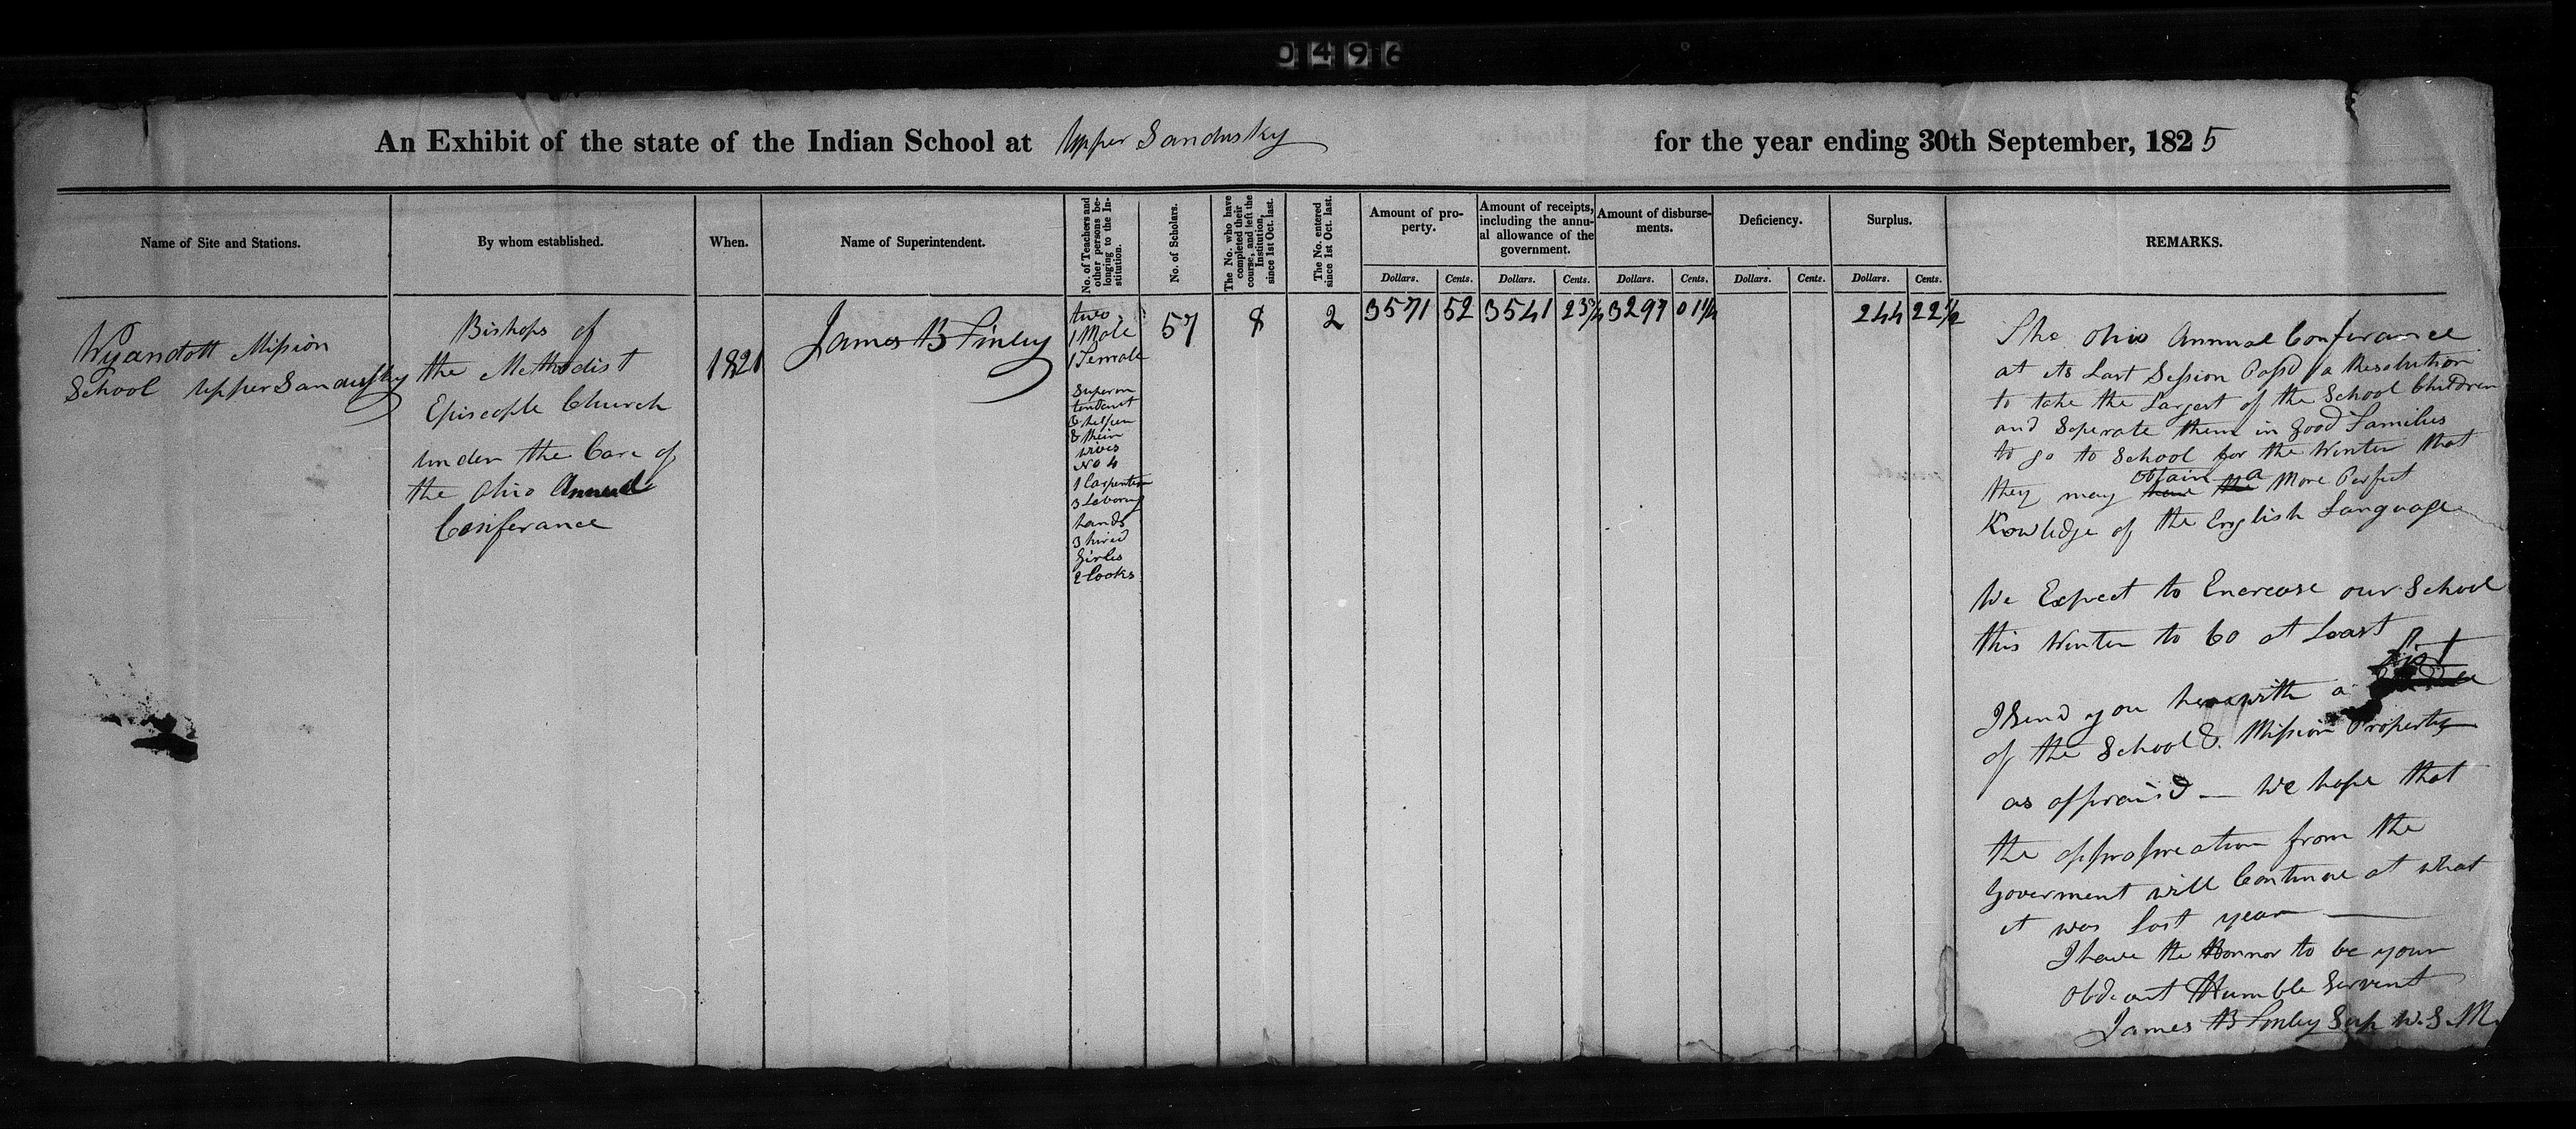 0496
An Exhibit of the state of the Indian School at Upper Sandusky for the year ending 30th September, 1825
Name of Site and Stations.
By whom established.
When.
Name of Superintendent.
No. of Teachers and
other persons be-
longing to the In-
stitution.
No. of Scholars.
The No. who have
completed their
course, and left the
Institution,
since 1st Oct. last.
The No. entered
since 1st Oct. last.
Amount of pro-
perty.
Amount of receipts,
including the annu-
al allowance of the
government.
Amount of disburse-
ments.
Deficiency.
Surplus.
REMARKS.
Dollars. Cents. Dollars. Cents. Dollars. Cents. Dollars. Cents. Dollars. Cents.
Wyandott Mission
School Upper Sandusky
Bishops of
the Methodist
Episcople Church
under the Care of
the Ohio Annual
Conferance
1821
James B Finley
two
1 Male
1 Female
Superin
tendant
& helper
& their
wives
No 4
1 Carpenter
3 Laboring
hands
3 hired
Girles
2 Cooks
57
8
2
3571 52
3541 23 3/4
3297 01 1/4
244 22 1/2
The Ohio Annual Conferance
at its Last Session Passd a Resolution
to take the Largest of the School Children
and Seperate them in good Families
to go to School for the Winter that
obtain a
they may have the More Perfect
Kowledge of the English Language
We Expect to Encrease our School
this Winter to 60 at Least
List
I Send you herewith a
of the School & Mission Property
as appraisd — We hope that
the appropreation from the
Goverment will Continue at what
it was Last year —
I have the Honnor to be your
Obdeant Humble Servent
James B Finley Sup W. S. M.